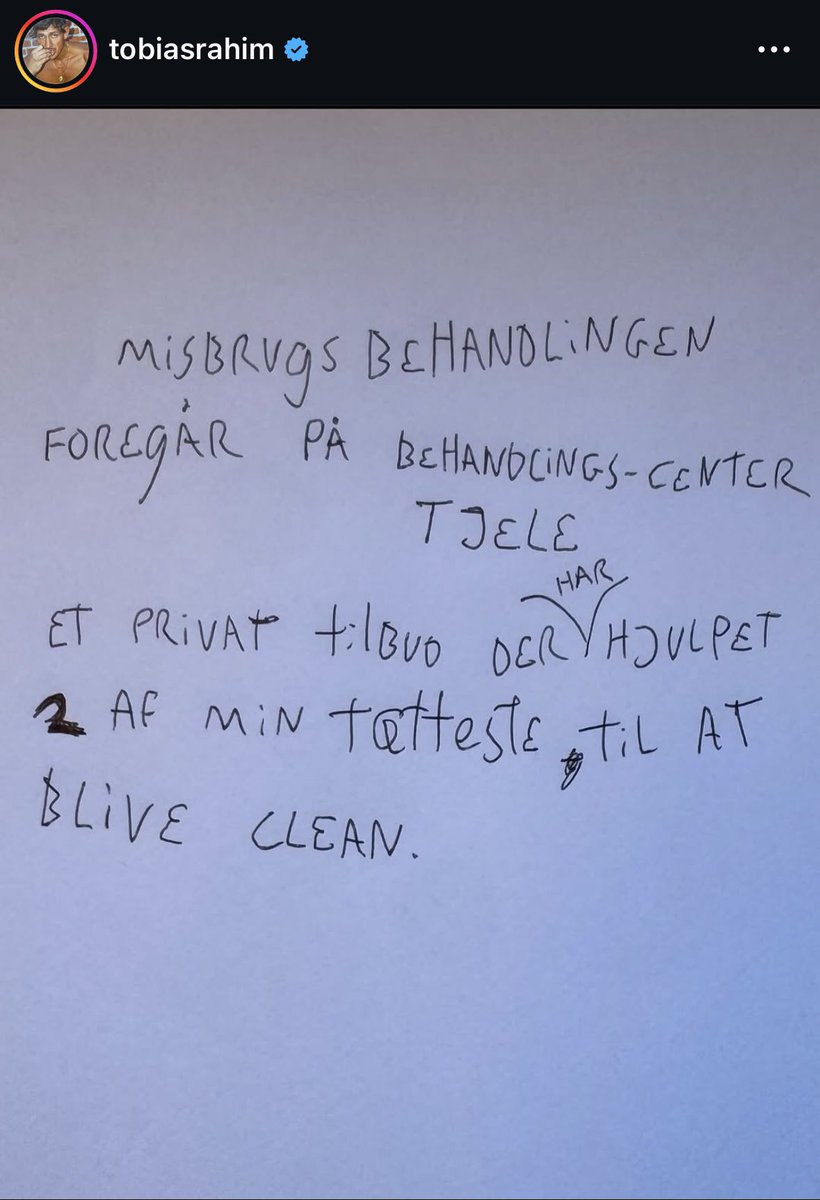 tobiasrahim
MiSBRUgS BEHANDLiNGEN
FOREgÅR PÅ BEHANDLiNGS-CENTER
TJELE
HAR
ET PRiVAT tilBUD DER HJULPET
2 AF MiN TætteSTE, TiL AT
BLiVE CLEAN.